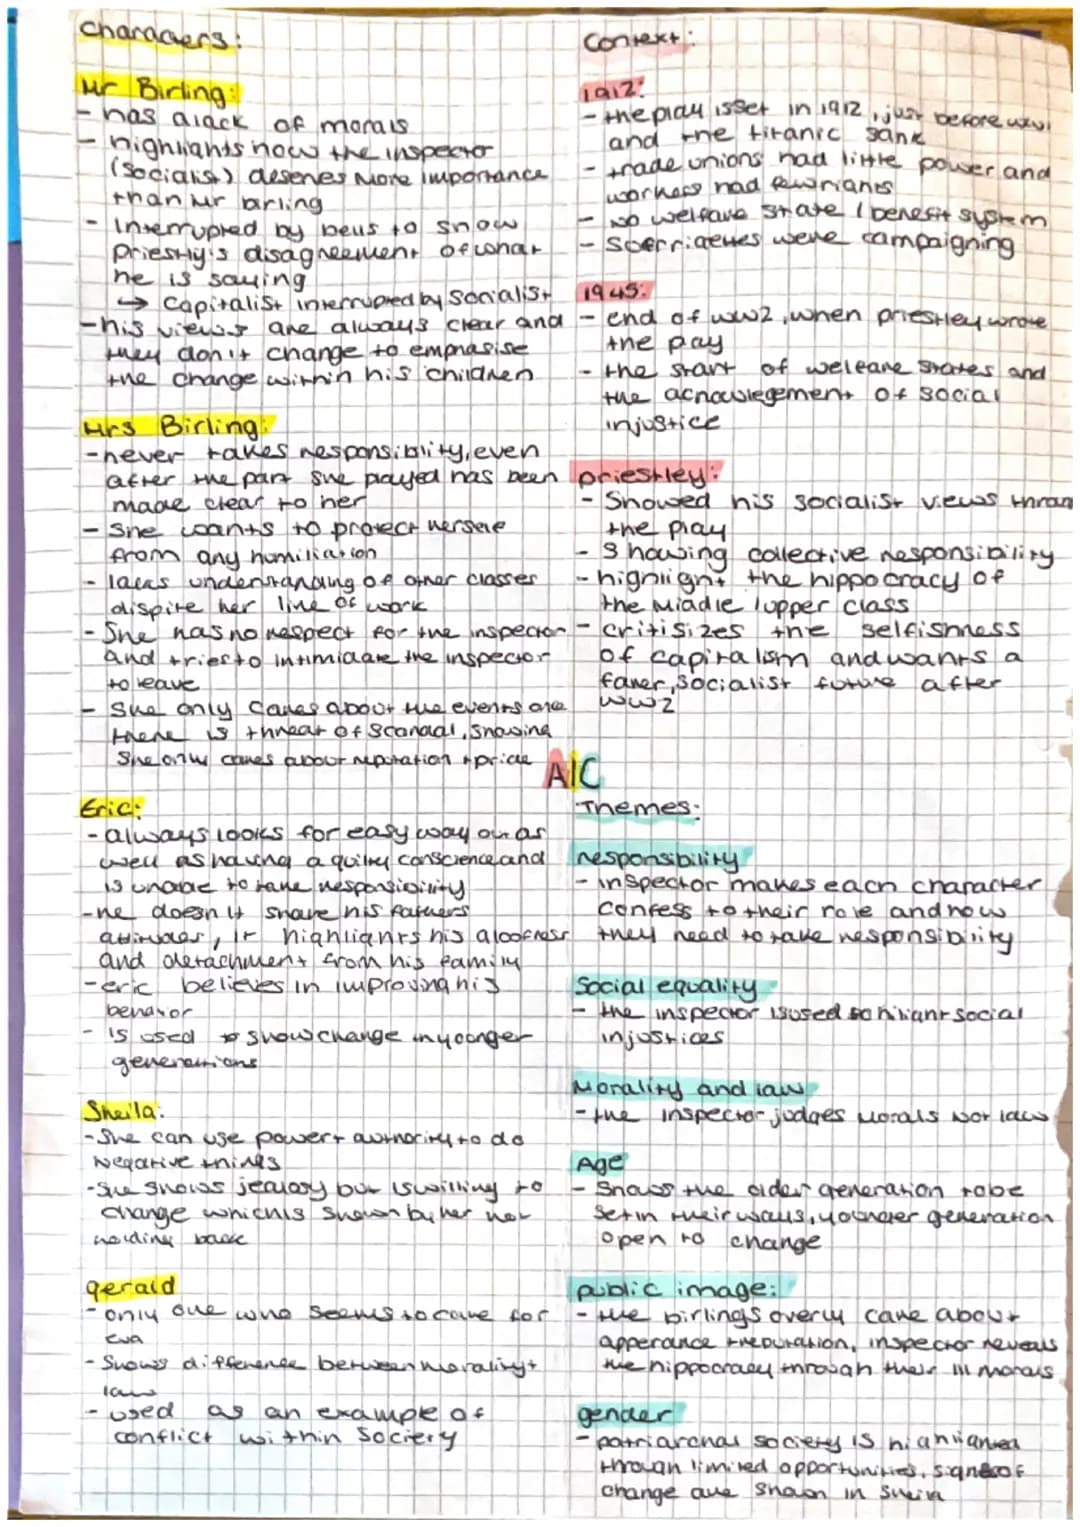 Characters:
Mr Birling:
- has a lack of morals
- highlights how the inspector
(Socialist) deserves more importance
than Mr birling
- Interrupted by bells to show
Priestly's disagreement of what
he is saying
→ Capitalist interrupted by Socialist
- his views are always clear and
they don't change to emphasise
the change within his children
Mrs Birling:
- never takes responsibility, even
after the part she played has been
made clear to her
- She wants to protect herself
from any humiliation
- lacks understanding of other classes
dispite her line of work
- She has no respect for the inspector
and tries to intimidate the inspector
to leave
- She only cares about the events once
there is threat of Scandal, Showing
She only cares about reputation + pride
Eric:
- always looks for easy way out as
well as having a guilty conscience and
is unable to take responsibility
- he doesn't share his fathers
attitudes, it highlights his aloofness
and detachment from his family
- eric believes in improving his
behavior
- is used to show change in younger
generations
Sheila:
- She can use power + authority to do
Negative things
- She shows jealosy but is willing to
change which is shown by her not
holding back
gerald
- only one who seems to care for
eva
- Shows difference between morality +
law
- used as an example of
conflict within Society
Context:
1912:
- the play is set in 1912, just before ww1
and the titanic sank
- trade unions had little power and
workers had few rights
- no welfare state / benefit system
- were campaigning
1945:
- end of ww2, when priestley wrote
the play
- the start of welfare states and
the of social
injustice
priestley:
- Showed his socialist views
the play
- Showing collective responsibility
- highlight the hippocracy of
the Middle / upper class
- critisizes the selfishness
of capitalism and wants a
socialist future after
ww2
AIC
Themes:
responsibility
- inspector makes each character
confess to their role and how
they need to take responsibility
Social equality
- the inspector is used to social
injustices
Morality and law
- the inspector judges morals not laws
Age
- Shows the older generation to be
set in their ways, younger generation
open to change
public image:
- the birlings overly care about
apperance + reputation, inspector reveals
the hippocracy through their ill morals
gender
- patriarchal society is
through limited opportunities, signs of
change are shown in Sheila